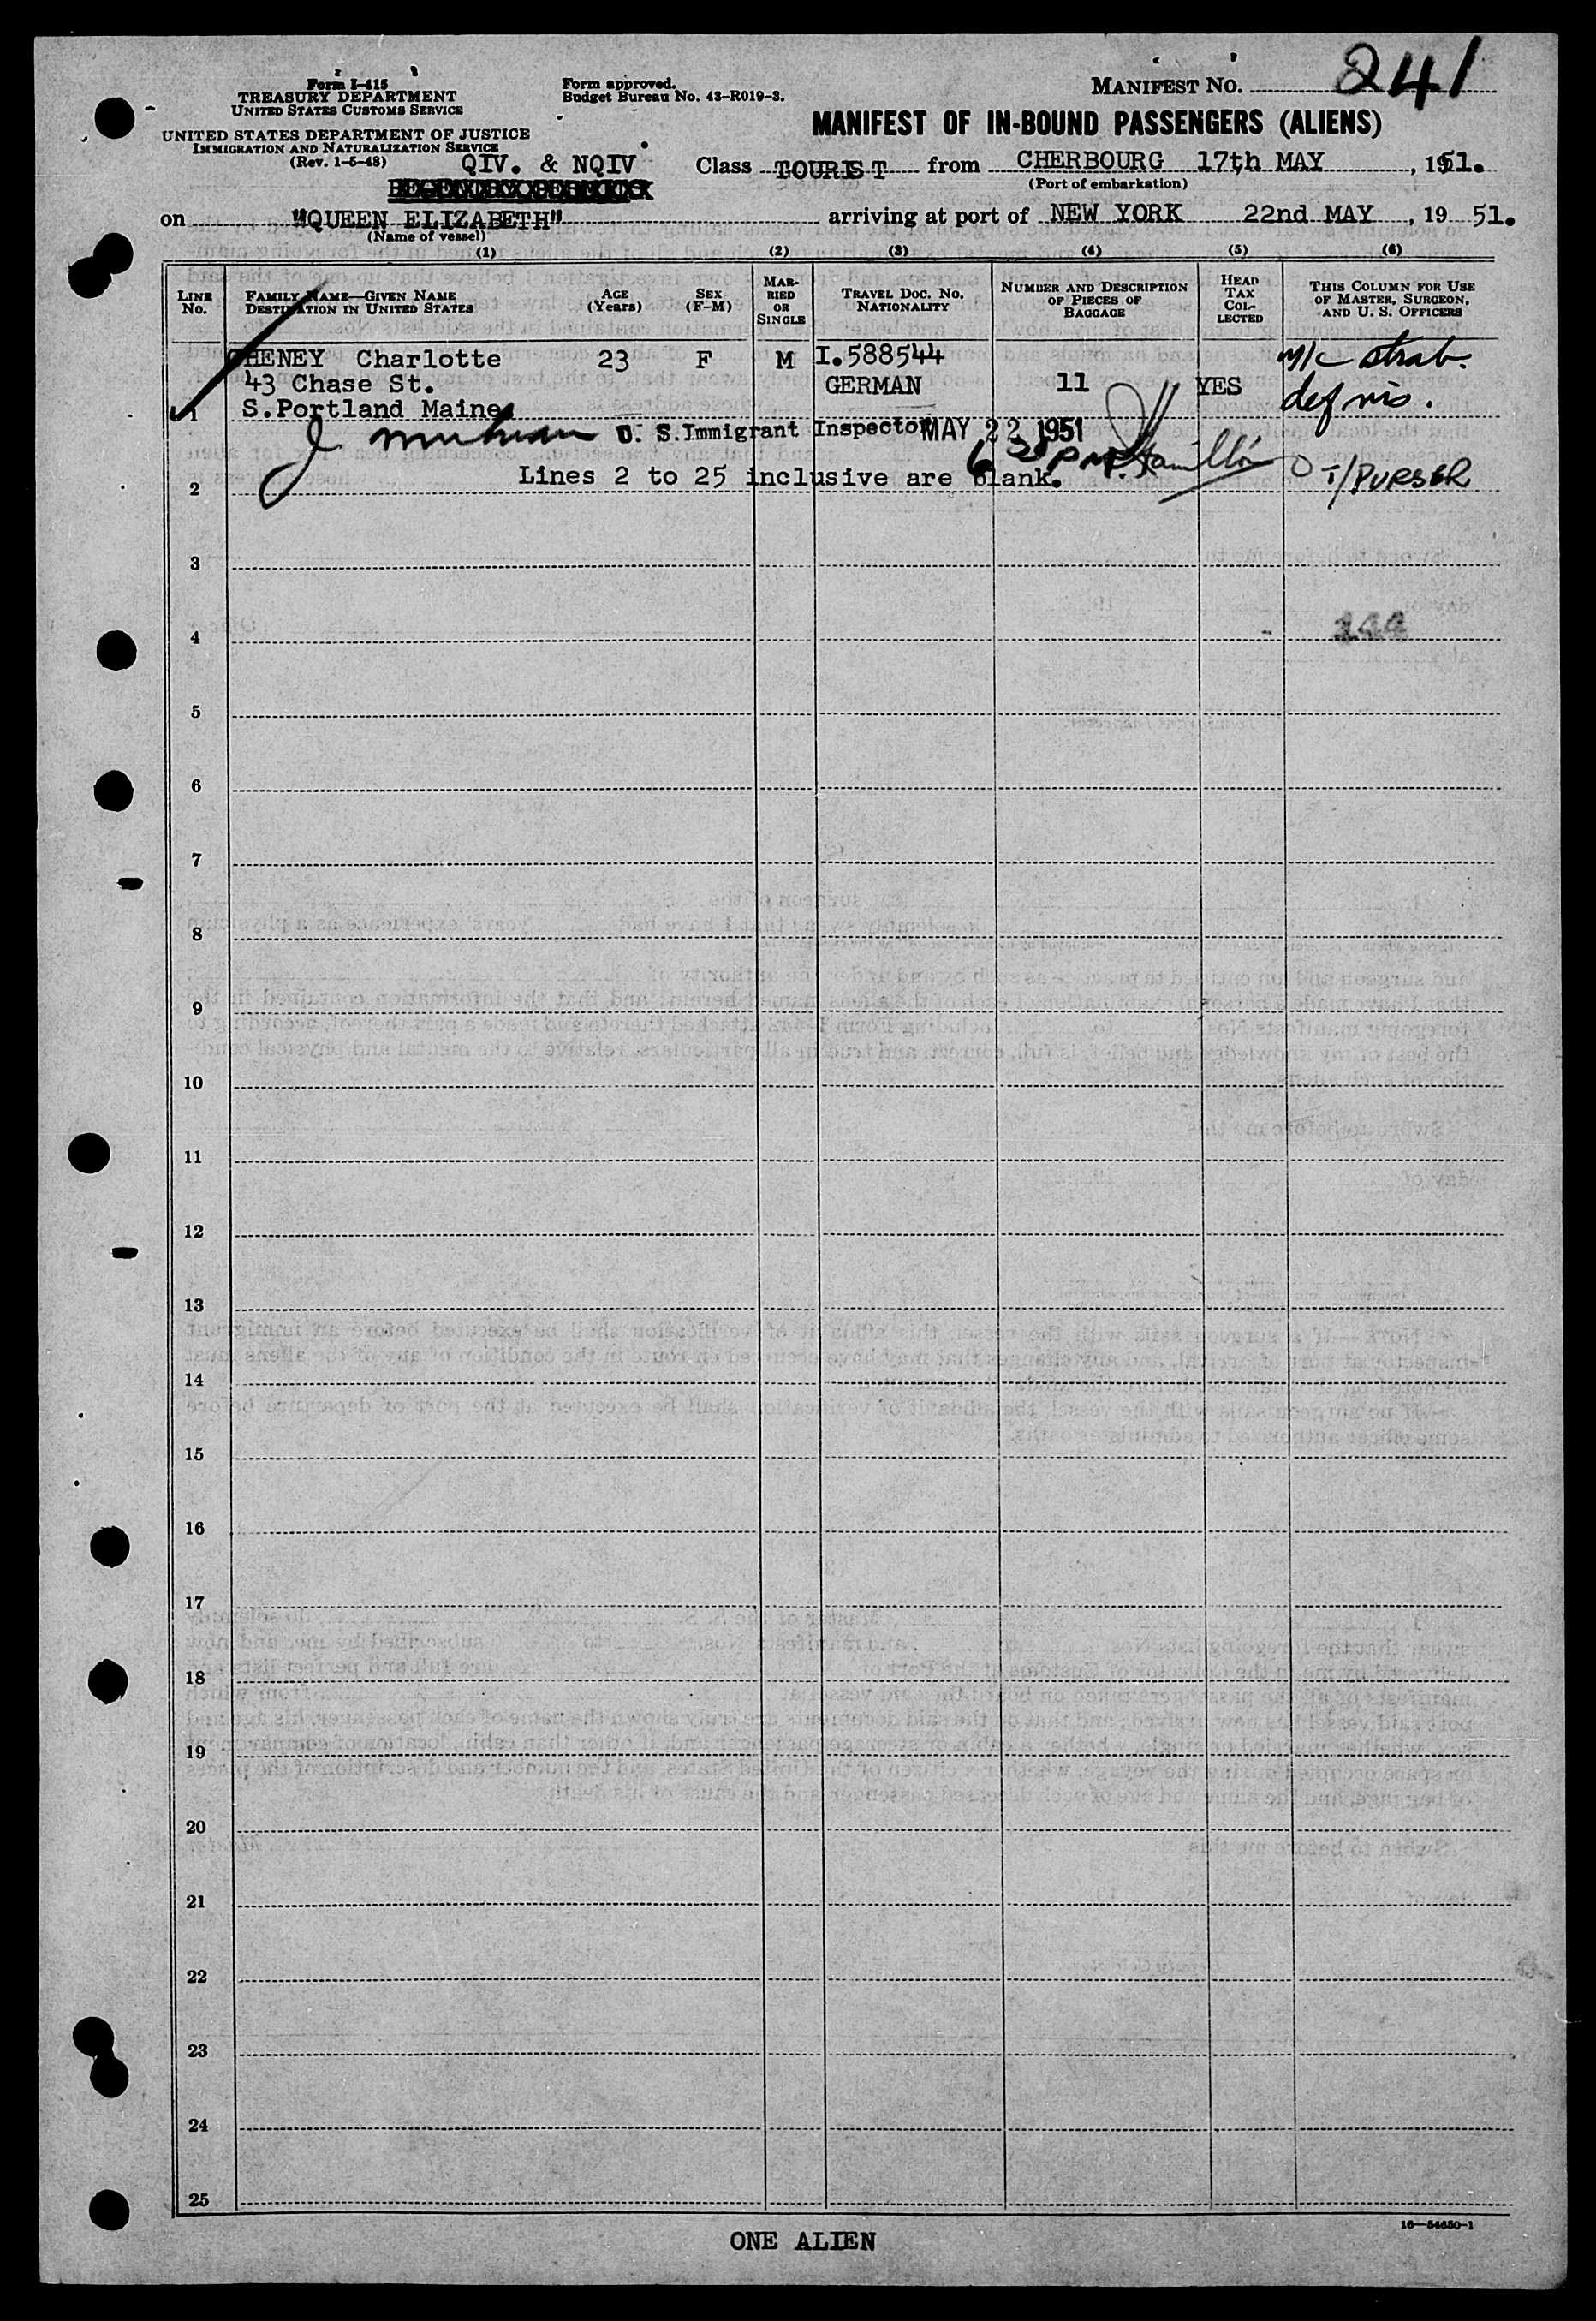 Form I-415
TREASURY DEPARTMENT
UNITED STATES CUSTOMS SERVICE
UNITED STATES DEPARTMENT OF JUSTICE
IMMIGRATION AND NATURALIZATION SERVICE
(Rev. 1-5-48)
Form approved.
Budget Bureau No. 43-R019-3.
MANIFEST NO. 241
MANIFEST OF IN-BOUND PASSENGERS (ALIENS)
QIV. & NQIV
Class TOURIST from CHERBOURG 17th MAY, 1951.
(Port of embarkation)
on "QUEEN ELIZABETH" arriving at port of NEW YORK 22nd MAY, 19 51.
(Name of vessel)
(1) (2) (3) (4) (5) (6)
LINE No.
FAMILY NAME—GIVEN NAME
DESTINATION IN UNITED STATES
AGE (Years)
SEX (F-M)
MARRIED OR SINGLE
TRAVEL DOC. NO. NATIONALITY
NUMBER AND DESCRIPTION OF PIECES OF BAGGAGE
HEAD TAX COLLECTED
THIS COLUMN FOR USE OF MASTER, SURGEON, AND U. S. OFFICERS
CHENEY Charlotte 23 F M I.588544 M/c strab.
43 Chase St. GERMAN 11 YES def vis.
1 S.Portland Maine
U. S. Immigrant Inspector MAY 22 1951
6 30 PM Hamilton T/PURSER
2 Lines 2 to 25 inclusive are blank.
3
4 244
5
6
7
8
9
10
11
12
13
14
15
16
17
18
19
20
21
22
23
24
25
16—54650-1
ONE ALIEN